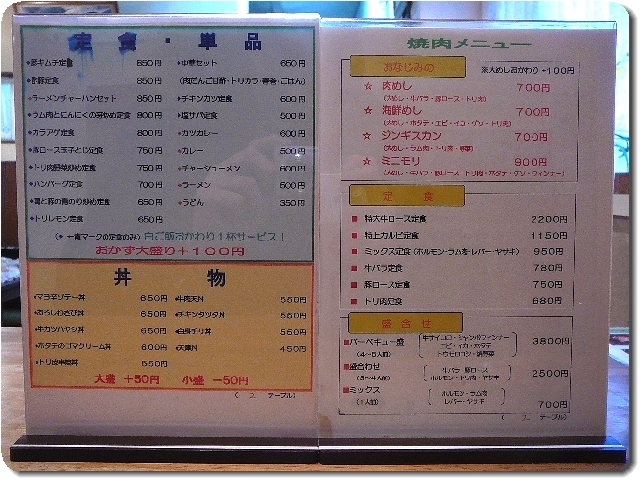 定食・単品
豚キムチ定食 850円
酢豚定食 850円
ラーメンチャーハンセット 850円
ラム肉とにんにくの芽炒め定食 800円
カラアゲ定食 800円
豚ロース玉子とじ定食 750円
トリ肉野菜炒め定食 750円
ハンバーグ定食 700円
650円
トリレモン定食 650円
中華セット 650円
(肉だんご甘酢・トリカラ・春巻・ごはん)
チキンカツ定食 600円
塩サバ定食 500円
カツカレー 600円
カレー 500円
チャーシューメン 600円
ラーメン 500円
うどん 350円
(◆←青マークの定食のみ) 白ご飯おかわり1杯サービス!
おかず大盛り+100円
丼物
マヨ辛ソテー丼 650円
おろしわさび丼 650円
牛カツハヤシ丼 650円
ホタテのゴマクリーム丼 600円
550円
牛肉天丼 550円
チキンタツタ丼 550円
白身チリ丼 550円
天津丼 450円
大盛 +50円 小盛 -50円
テーブル)
焼肉メニュー
おなじみの ※大めしおかわり +100円
☆ 肉めし 700円
(大めし・牛バラ・豚ロース・トリ肉)
☆ 海鮮めし 700円
(大めし・ホタテ・エビ・イカ・ゲソ・トリ肉)
☆ ジンギスカン 700円
(大めし・ラム肉・トリ肉・野菜)
☆ ミニモリ 900円
(大めし・牛バラ・豚ロース・トリ肉・ホタテ・ゲソ・ウィンナー)
定食
■ 特大牛ロース定食 2200円
■ 特上カルビ定食 1150円
■ ミックス定食(ホルモン・ラム肉・レバー・ヤサキ) 950円
■ 牛バラ定食 780円
■ 豚ロース定食 750円
■ トリ肉定食 680円
盛合せ
■バーベキュー盛 3800円
(4~5人前)
エビ・イカ・ホタテ
トウモロコシ・焼野菜
■盛合わせ 2500円
(3~4人前)
牛バラ・豚ロース
ホルモン・トリ肉・ヤサキ
■ミックス
(1人前) 700円
ホルモン・ラム肉
レバー・ヤサキ
テーブル)